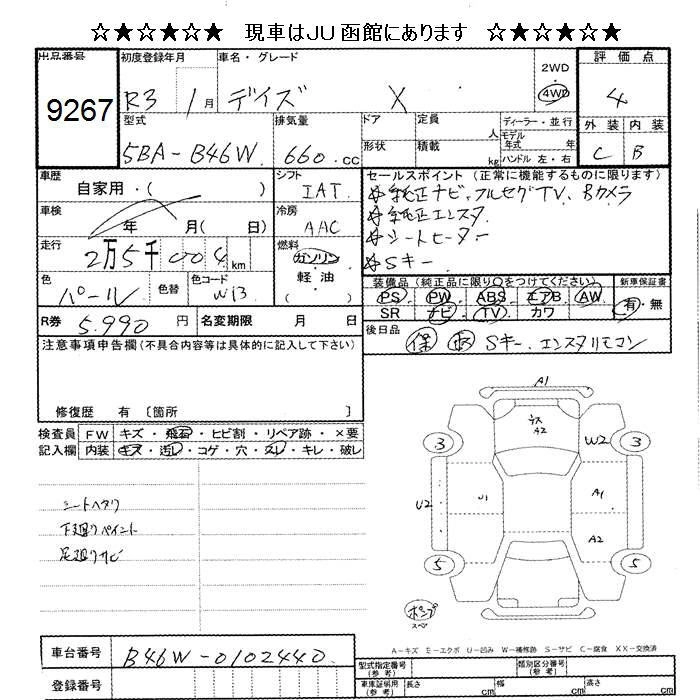 ☆★☆★☆★ 現車はJU函館にあります ☆★☆★☆★
出品番号 初度登録年月 車名・グレード 2WD 評価点
9267 R3 1月 デイズ X 4WD 4
型式 排気量 ドア 定員 人 ディーラー・並行 外装 内装
モデル年式 年
5BA-B46W 660 cc 形状 積載 kg ハンドル 左・右 C B
車歴 シフト セールスポイント (正常に機能するものに限ります)
自家用・( ) IAT ☆純正ナビ、フルセグTV、Bカメラ
車検 冷房 ☆純正エンスタ
年 月( 日) AAC ☆シートヒーター
走行 燃料 ☆Sキー
2万5千004km ガソリン・軽油・( )
色 色替 色コード 装備品(純正品に限り○をつけてください) 新車保証書
パール W13 PS PW ABS エアB AW 有・無
SR ナビ TV カワ
R券 5.990円 名変期限 月 日 後日品
保 取 Sキー、エンスタリモコン
注意事項申告欄(不具合内容等は具体的に記入して下さい)
修復歴 有 〔箇所 〕
検査員 FW キズ・飛石・ヒビ割・リペア跡・×要
記入欄 内装 キズ・汚レ・コゲ・穴・スレ・キレ・破レ
シートヘタリ
下廻りペイント
足廻りサビ
A1
A2
W2
3 3
U2 U1 A1
A2
5 5
ポンプ
スペ
A-キズ E-エクボ U-凹み W-補修跡 S-サビ C-腐食 XX-交換済
車台番号 B46W-0102440
型式指定番号(参考) 類別区分番号(参考)
登録番号 車庫証明用(参考) 長さ cm 幅 cm 高さ cm